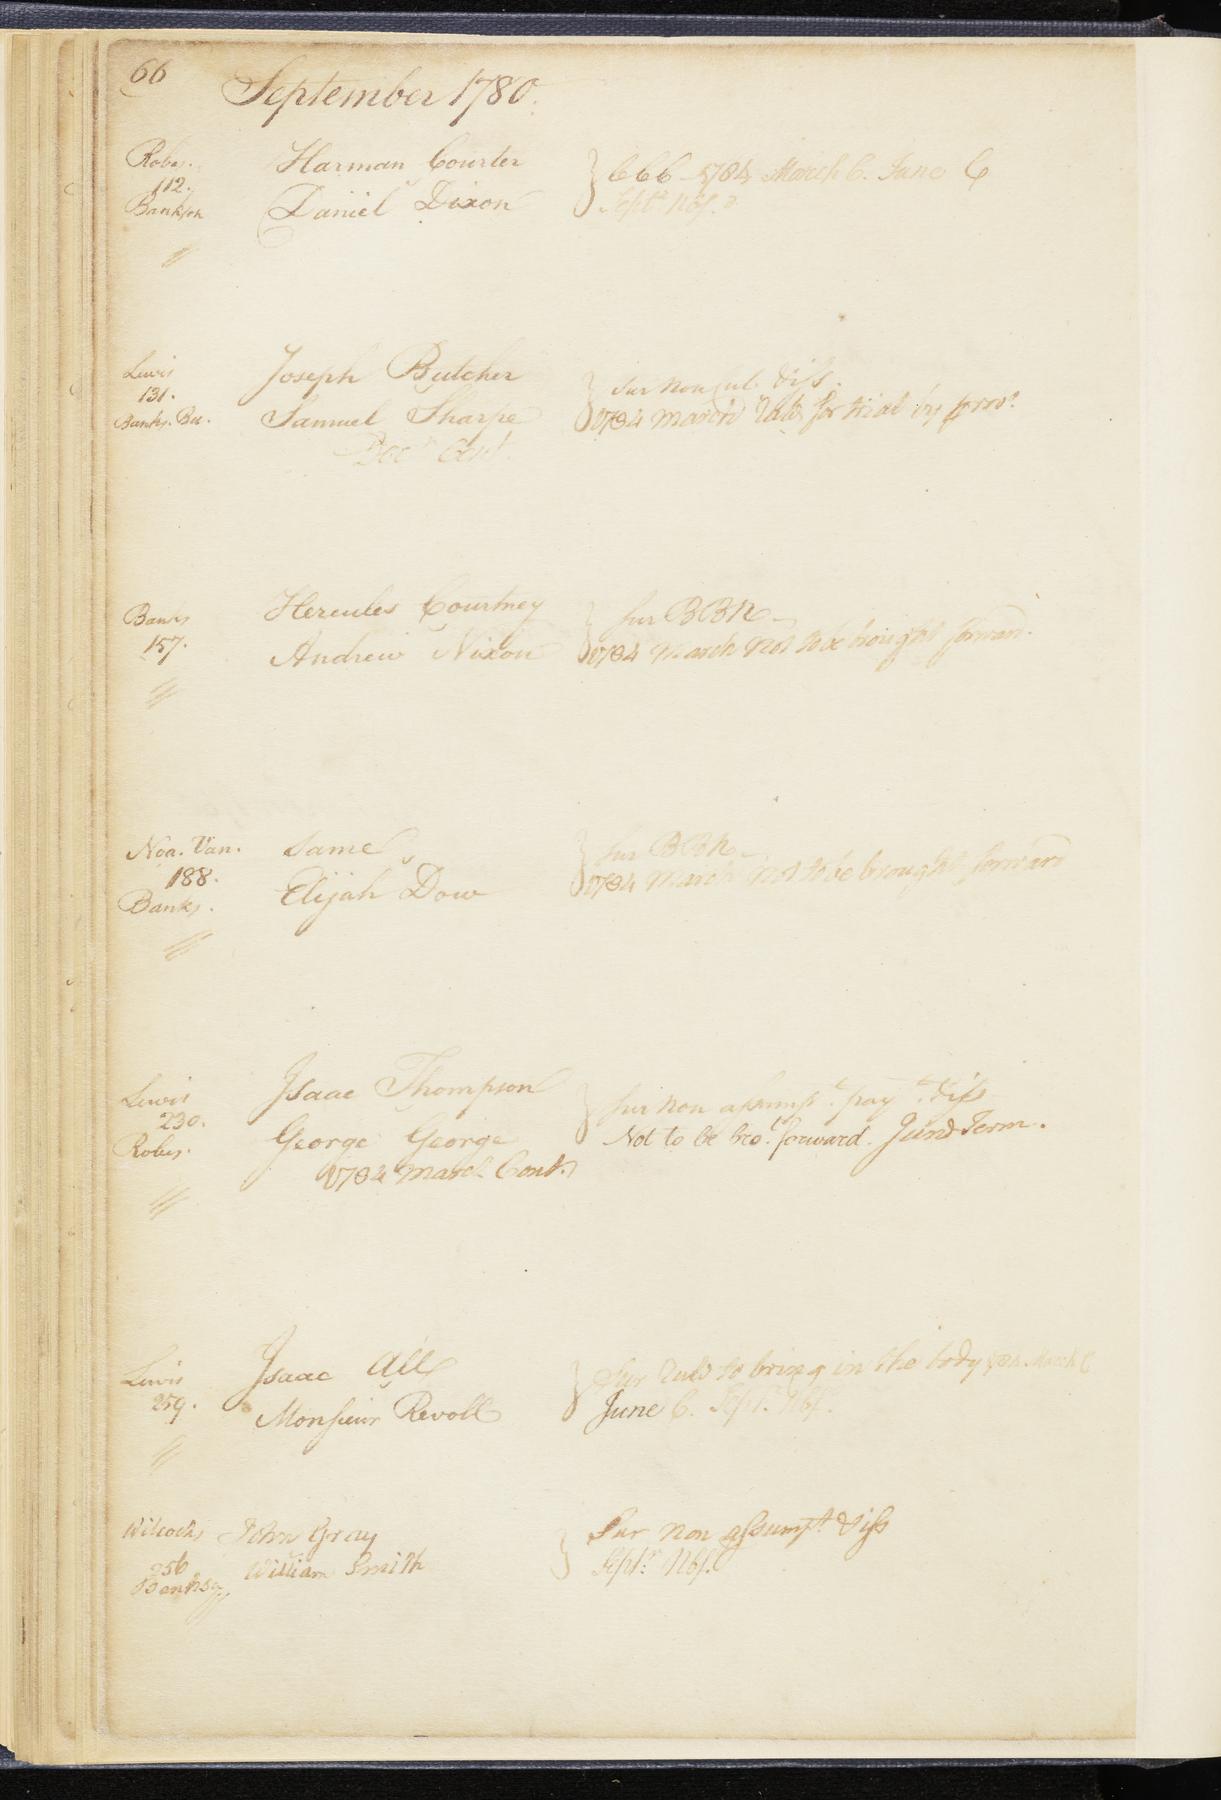 66
September 1780.
Robes. Harman Courter } C C C - 1784 March C. June C
112.
Bankson Daniel Dixon Septr. Nbf.
Lewis Joseph Butcher } Sur non cul. Diss.
131.
Banks. Samuel Sharpe 1784 March Rule for trial by prov.
Hercules Courtney } Sur BBR
Banks
157. Andrew Nixon 1784 March Not to be brought forward.
Noa. Van. Same } Sur BBR
188.
Banks. Elijah Dow 1784 March Not to be brought forward
Lewis Isaac Thompson } Sur non assumpt. pay t. Diss
230.
Robes. George George Not to be bro.t forward. June Term.
1784 March Cont.
Lewis Isaac All } Sur Rule to bring in the body 1784 March C
259. Monsieur Revoll June C. Septr. Nbf.
Wilcocks John Gray } Sur non assumpt. Diss
256 William Smith Septr. Nbf.
Banks